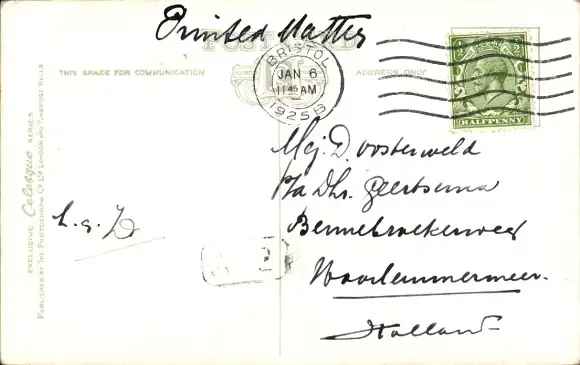 Printed Matter
POST CARD
THIS SPACE FOR COMMUNICATION
ADDRESS ONLY
BRISTOL
JAN 6
11 45 AM
1925 B
HALFPENNY
Mej. D. Oosterveld
p/a Dhr. Geertsema
Bennebroekerweg
Haarlemmermeer.
Holland
h.g. D
EXCLUSIVE Celesque SERIES
PUBLISHED BY THE PHOTOCHROM CO. LTD. LONDON AND TUNBRIDGE WELLS